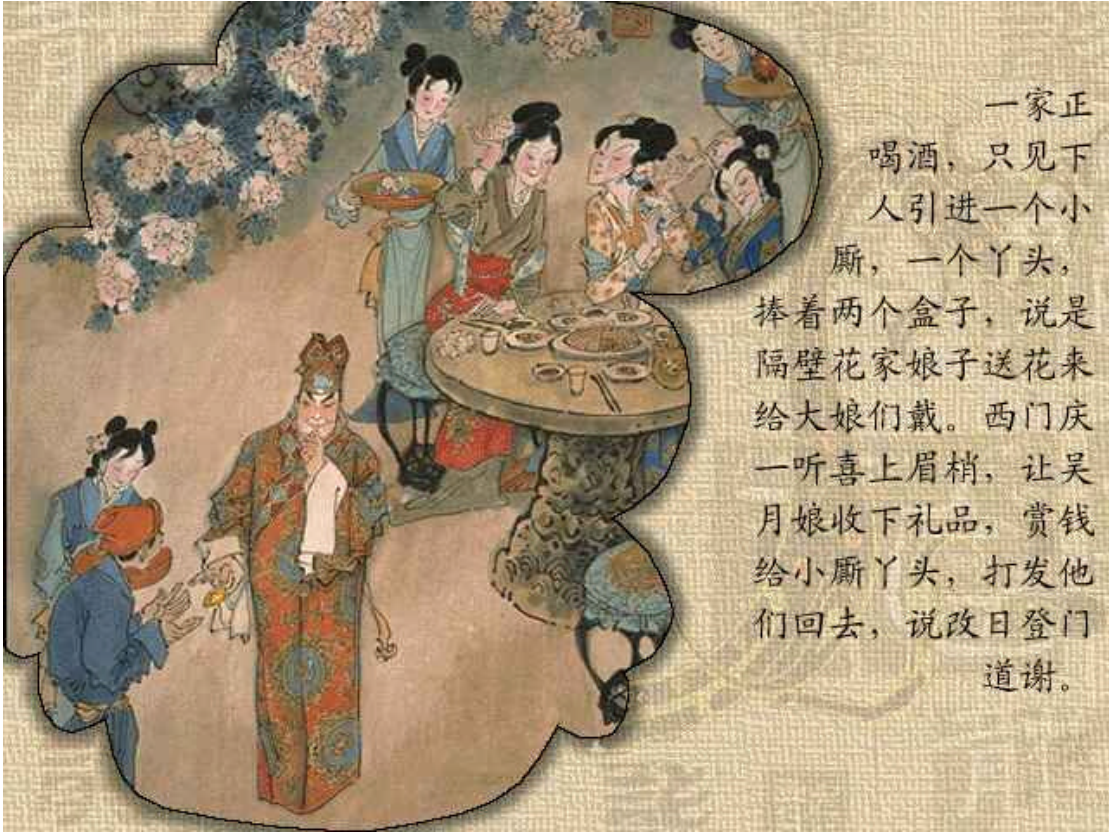 一家正
喝酒，只见下
人引进一个小
厮，一个丫头，
捧着两个盒子，说是
隔壁花家娘子送花来
给大娘们戴。西门庆
一听喜上眉梢，让吴
月娘收下礼品，赏钱
给小厮丫头，打发他
们回去，说改日登门
道谢。